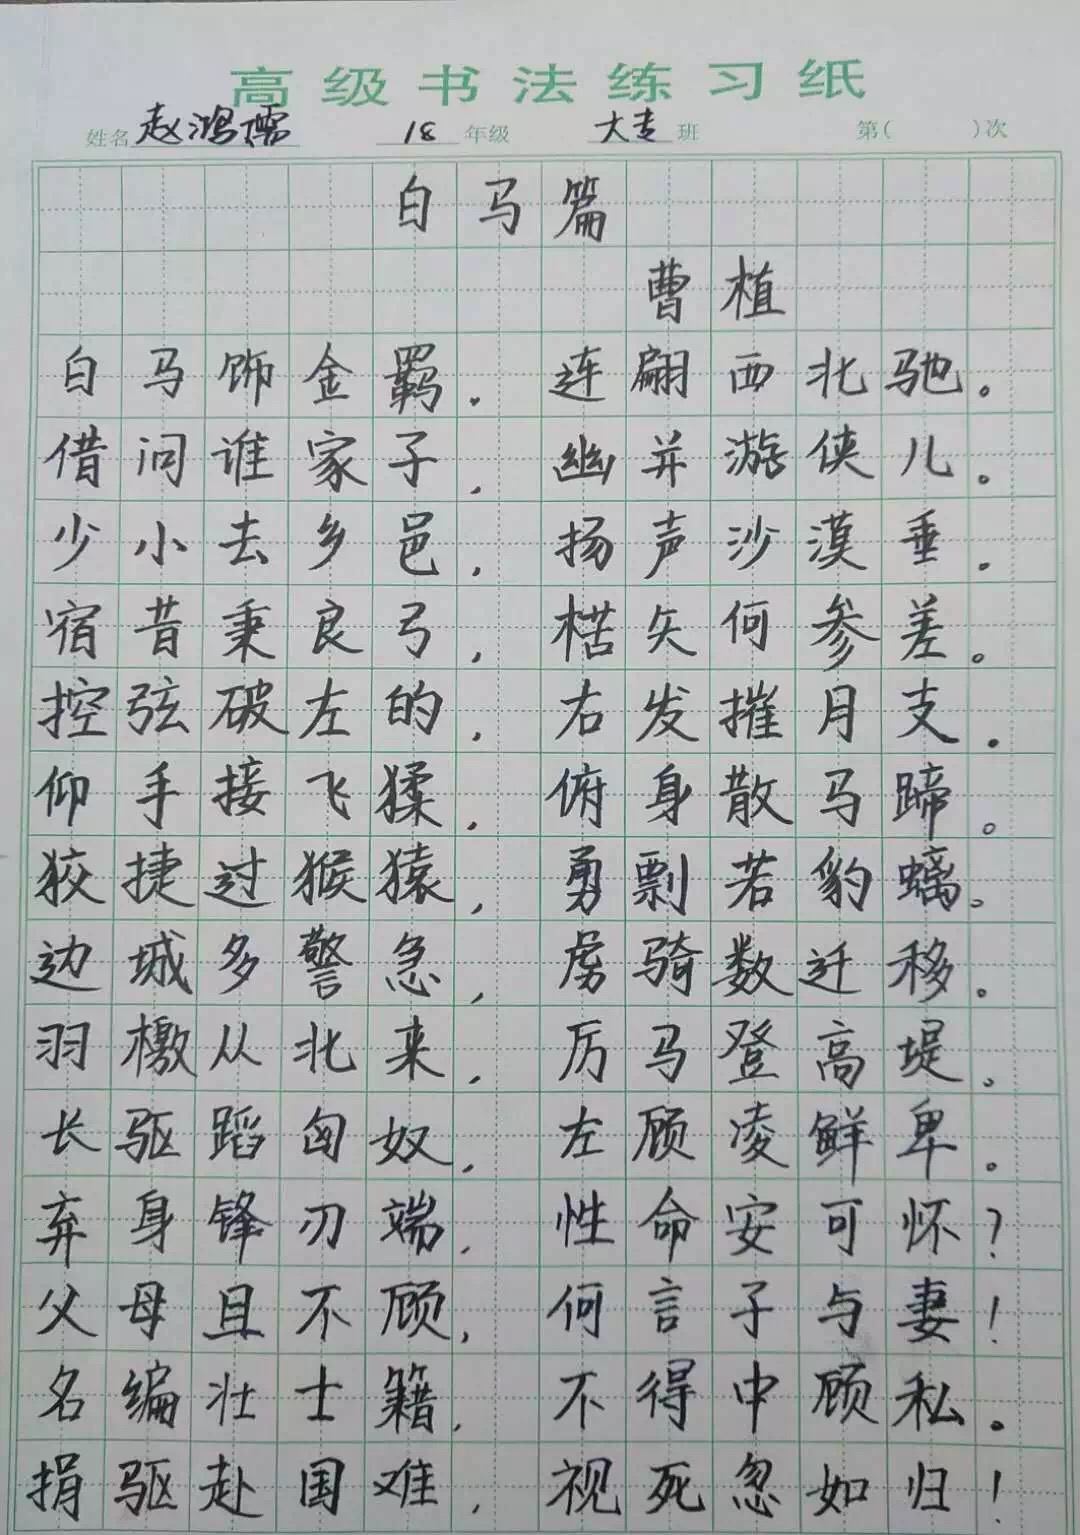 高级书法练习纸
姓名 赵鸿儒 18 年级 大专 班 第( )次
白马篇
曹植
白马饰金羁。连翩西北驰。
借问谁家子,幽并游侠儿。
少小去乡邑,扬声沙漠垂。
宿昔秉良弓,楛矢何参差。
控弦破左的,右发摧月支。
仰手接飞猱,俯身散马蹄。
狡捷过猴猿,勇剽若豹螭。
边城多警急,虏骑数迁移。
羽檄从北来,厉马登高堤。
长驱蹈匈奴,左顾凌鲜卑。
弃身锋刃端,性命安可怀?
父母且不顾,何言子与妻!
名编壮士籍,不得中顾私。
捐驱赴国难,视死忽如归!